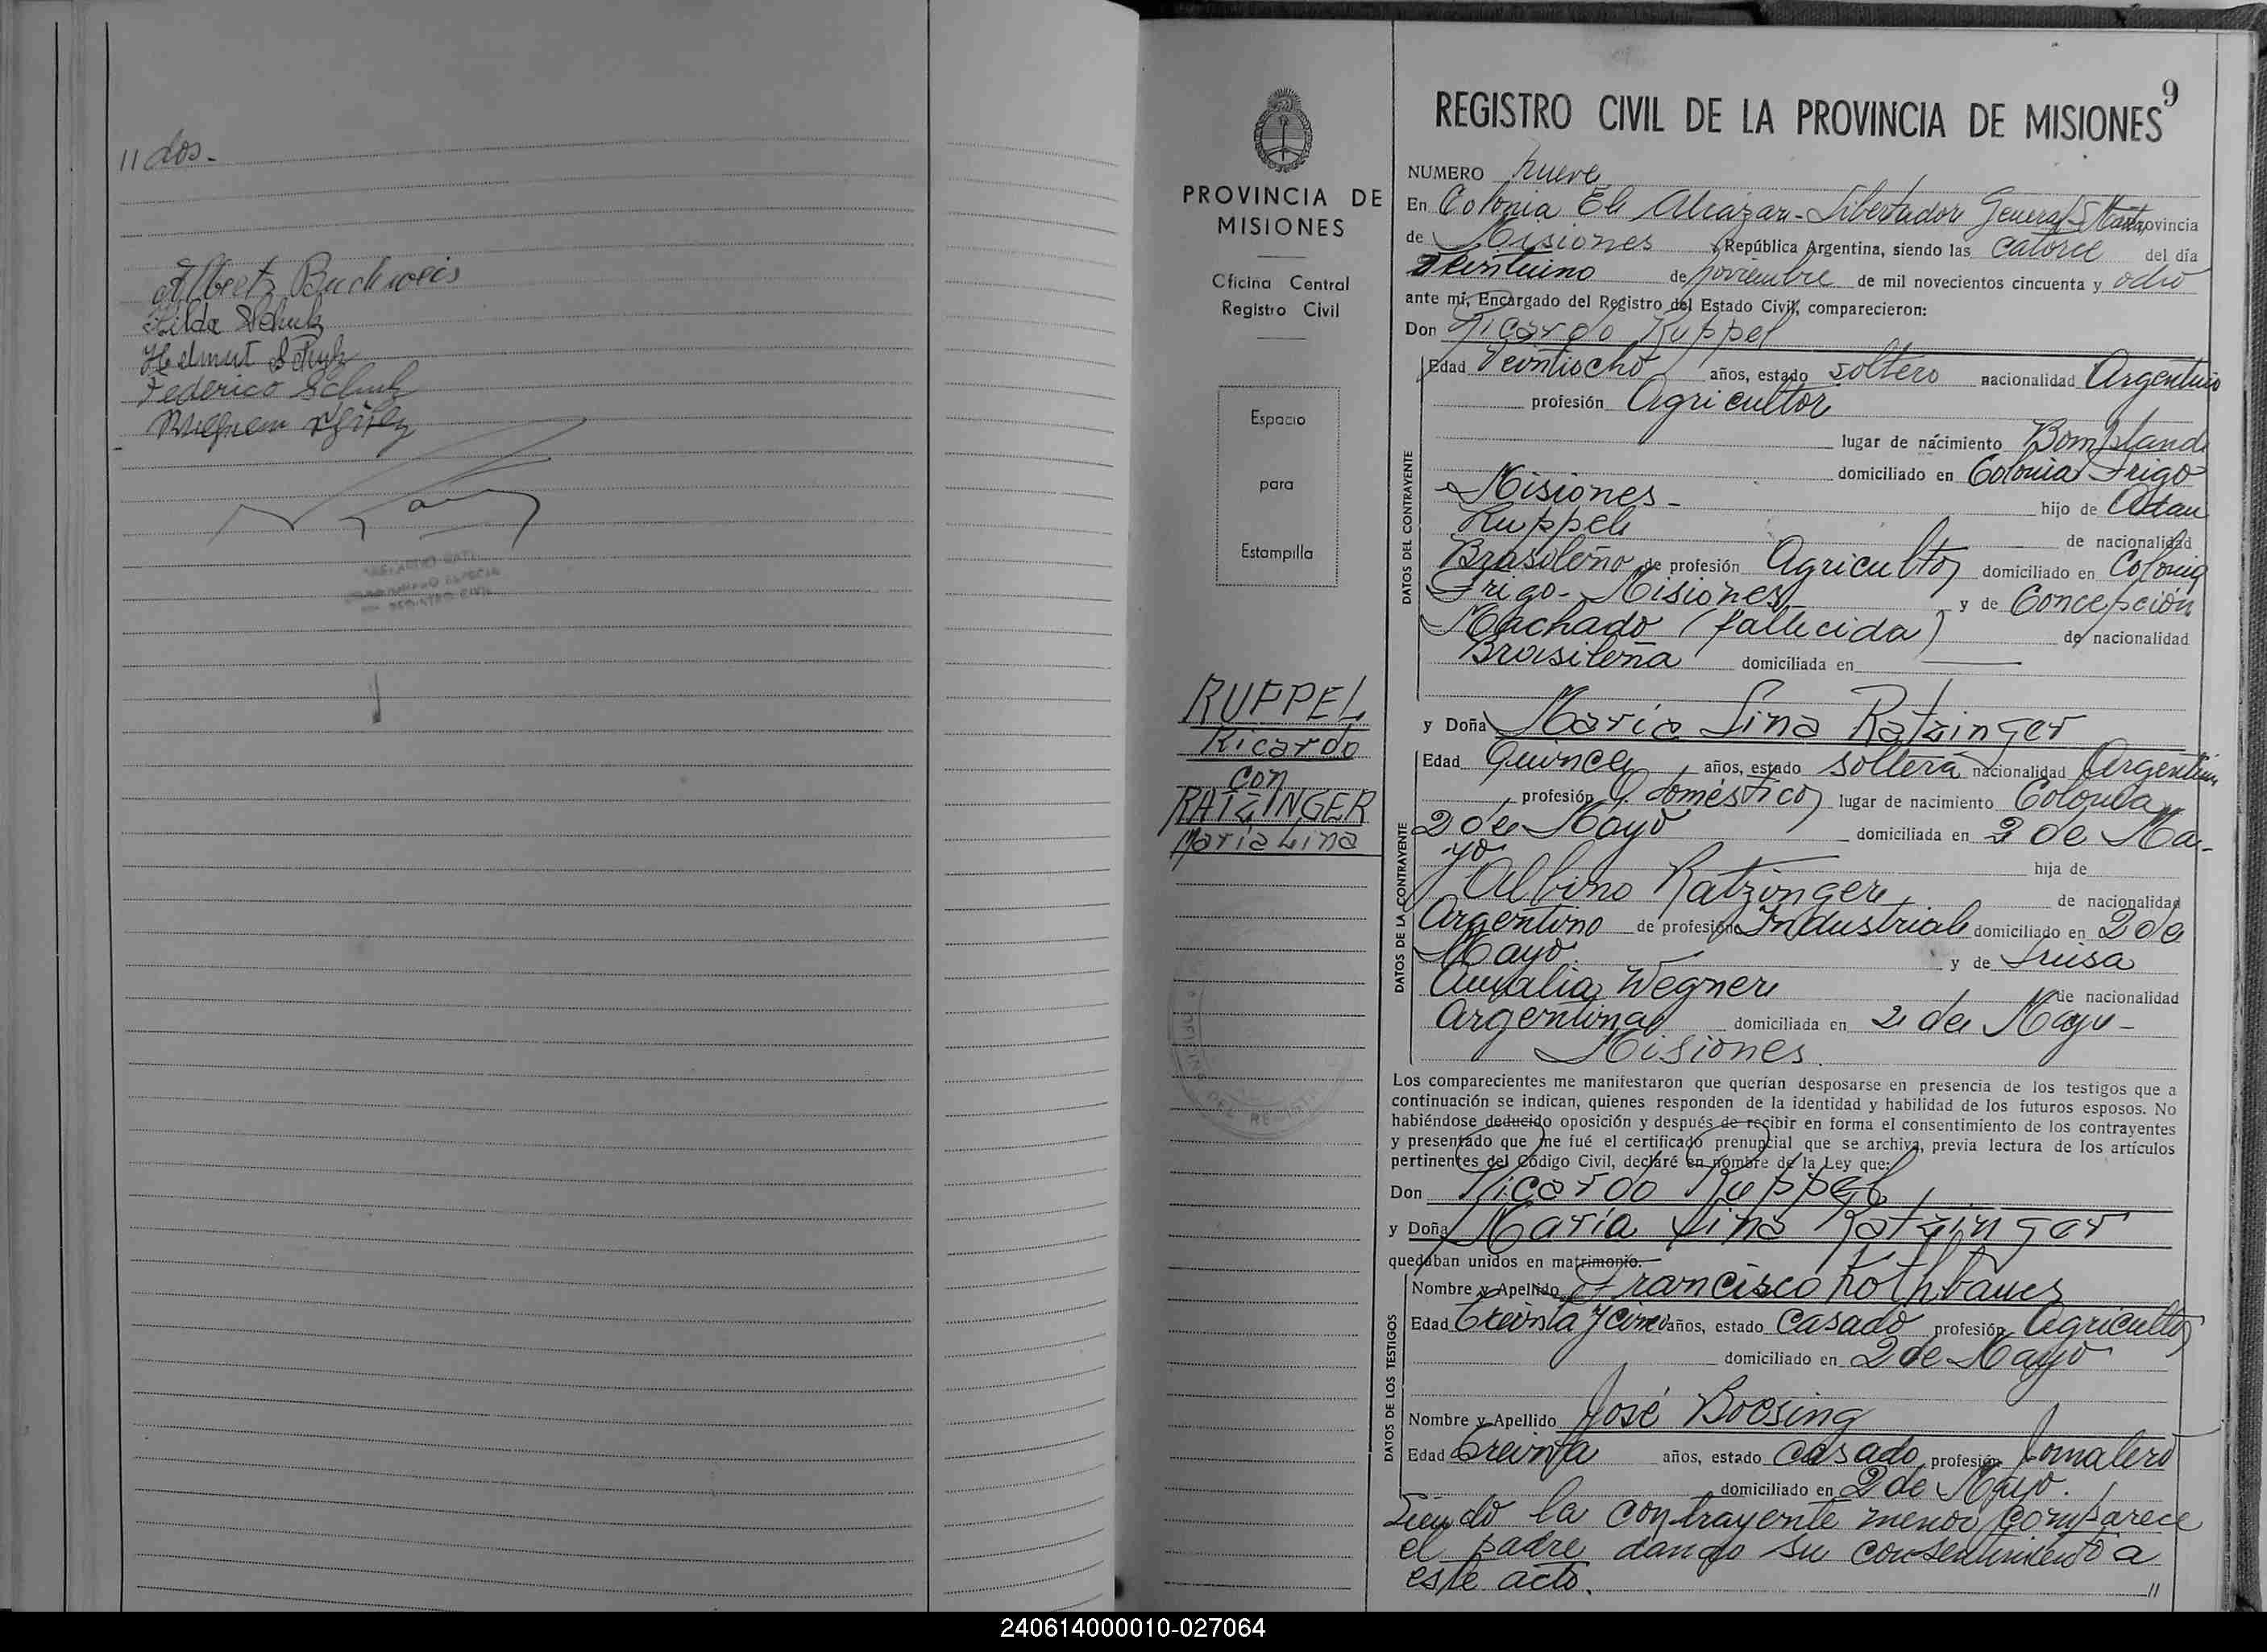 11 dos.
Hilda Schulz
Helmut Schulz
Federico Schulz
9
REGISTRO CIVIL DE LA PROVINCIA DE MISIONES
PROVINCIA DE
MISIONES
Oficina Central
Registro Civil
Espacio
para
Estampilla
RUPPEL
Ricardo
con
RATZINGER
María Lina
NUMERO nueve
En Colonia El Alcazar - Libertador General S Martin Provincia
de Misiones República Argentina, siendo las catorce del día
de noviembre de mil novecientos cincuenta y ocho
ante mí, Encargado del Registro del Estado Civil, comparecieron:
Don Ricardo Ruppel
DATOS DEL CONTRAYENTE
Edad Veintiocho años, estado soltero nacionalidad Argentino
profesión Agricultor
lugar de nacimiento Bompland
domiciliado en Colonia Frigo
Misiones - hijo de
Ruppel de nacionalidad
Brasileño de profesión Agricultor domiciliado en Colonia
Frigo - Misiones y de Concepción
Machado (fallecida) de nacionalidad
Brasileña domiciliada en
y Doña María Lina Ratzinger
DATOS DE LA CONTRAYENTE
Edad Quince años, estado soltera nacionalidad Argentina
profesión Q. domésticos lugar de nacimiento Colonia
2 de Mayo domiciliada en 2 de Ma-
yo hija de
Albino Ratzinger de nacionalidad
Argentino de profesión Industrial domiciliado en 2 de
Mayo. y de Luisa
Amalia Wegner de nacionalidad
Argentina domiciliada en 2 de Mayo -
Misiones.
Los comparecientes me manifestaron que querían desposarse en presencia de los testigos que a
continuación se indican, quienes responden de la identidad y habilidad de los futuros esposos. No
habiéndose deducido oposición y después de recibir en forma el consentimiento de los contrayentes
y presentado que me fué el certificado prenupcial que se archiva, previa lectura de los artículos
pertinentes del Código Civil, declaré en nombre de la Ley que:
Don Ricardo Ruppel
y Doña María Lina Ratzinger
quedaban unidos en matrimonio.
DATOS DE LOS TESTIGOS
Nombre y Apellido Francisco Rothbauer
Edad treinta y cinco años, estado casado profesión Agricultor
domiciliado en 2 de Mayo
Nombre y Apellido José Boesing
Edad treinta años, estado casado profesión Jornalero
domiciliado en 2 de Mayo.
Siendo la contrayente menor comparece
el padre dando su consentimiento a
este acto. //
240614000010-027064